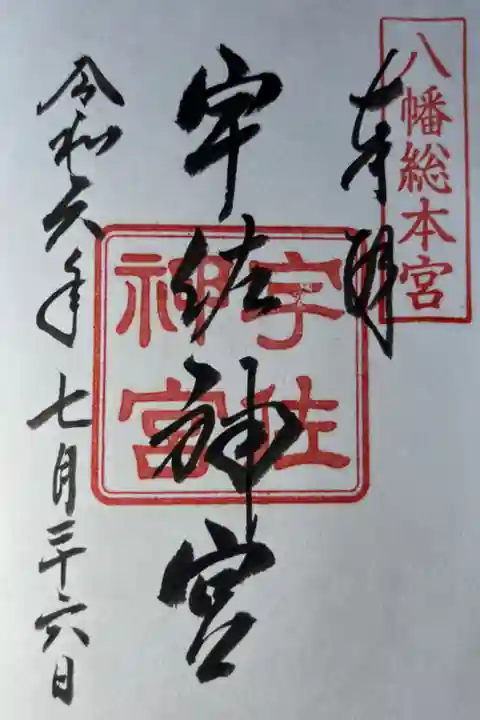 八幡総本宮
奉拝
宇佐神宮
宇佐
神宮
令和六年七月二十六日